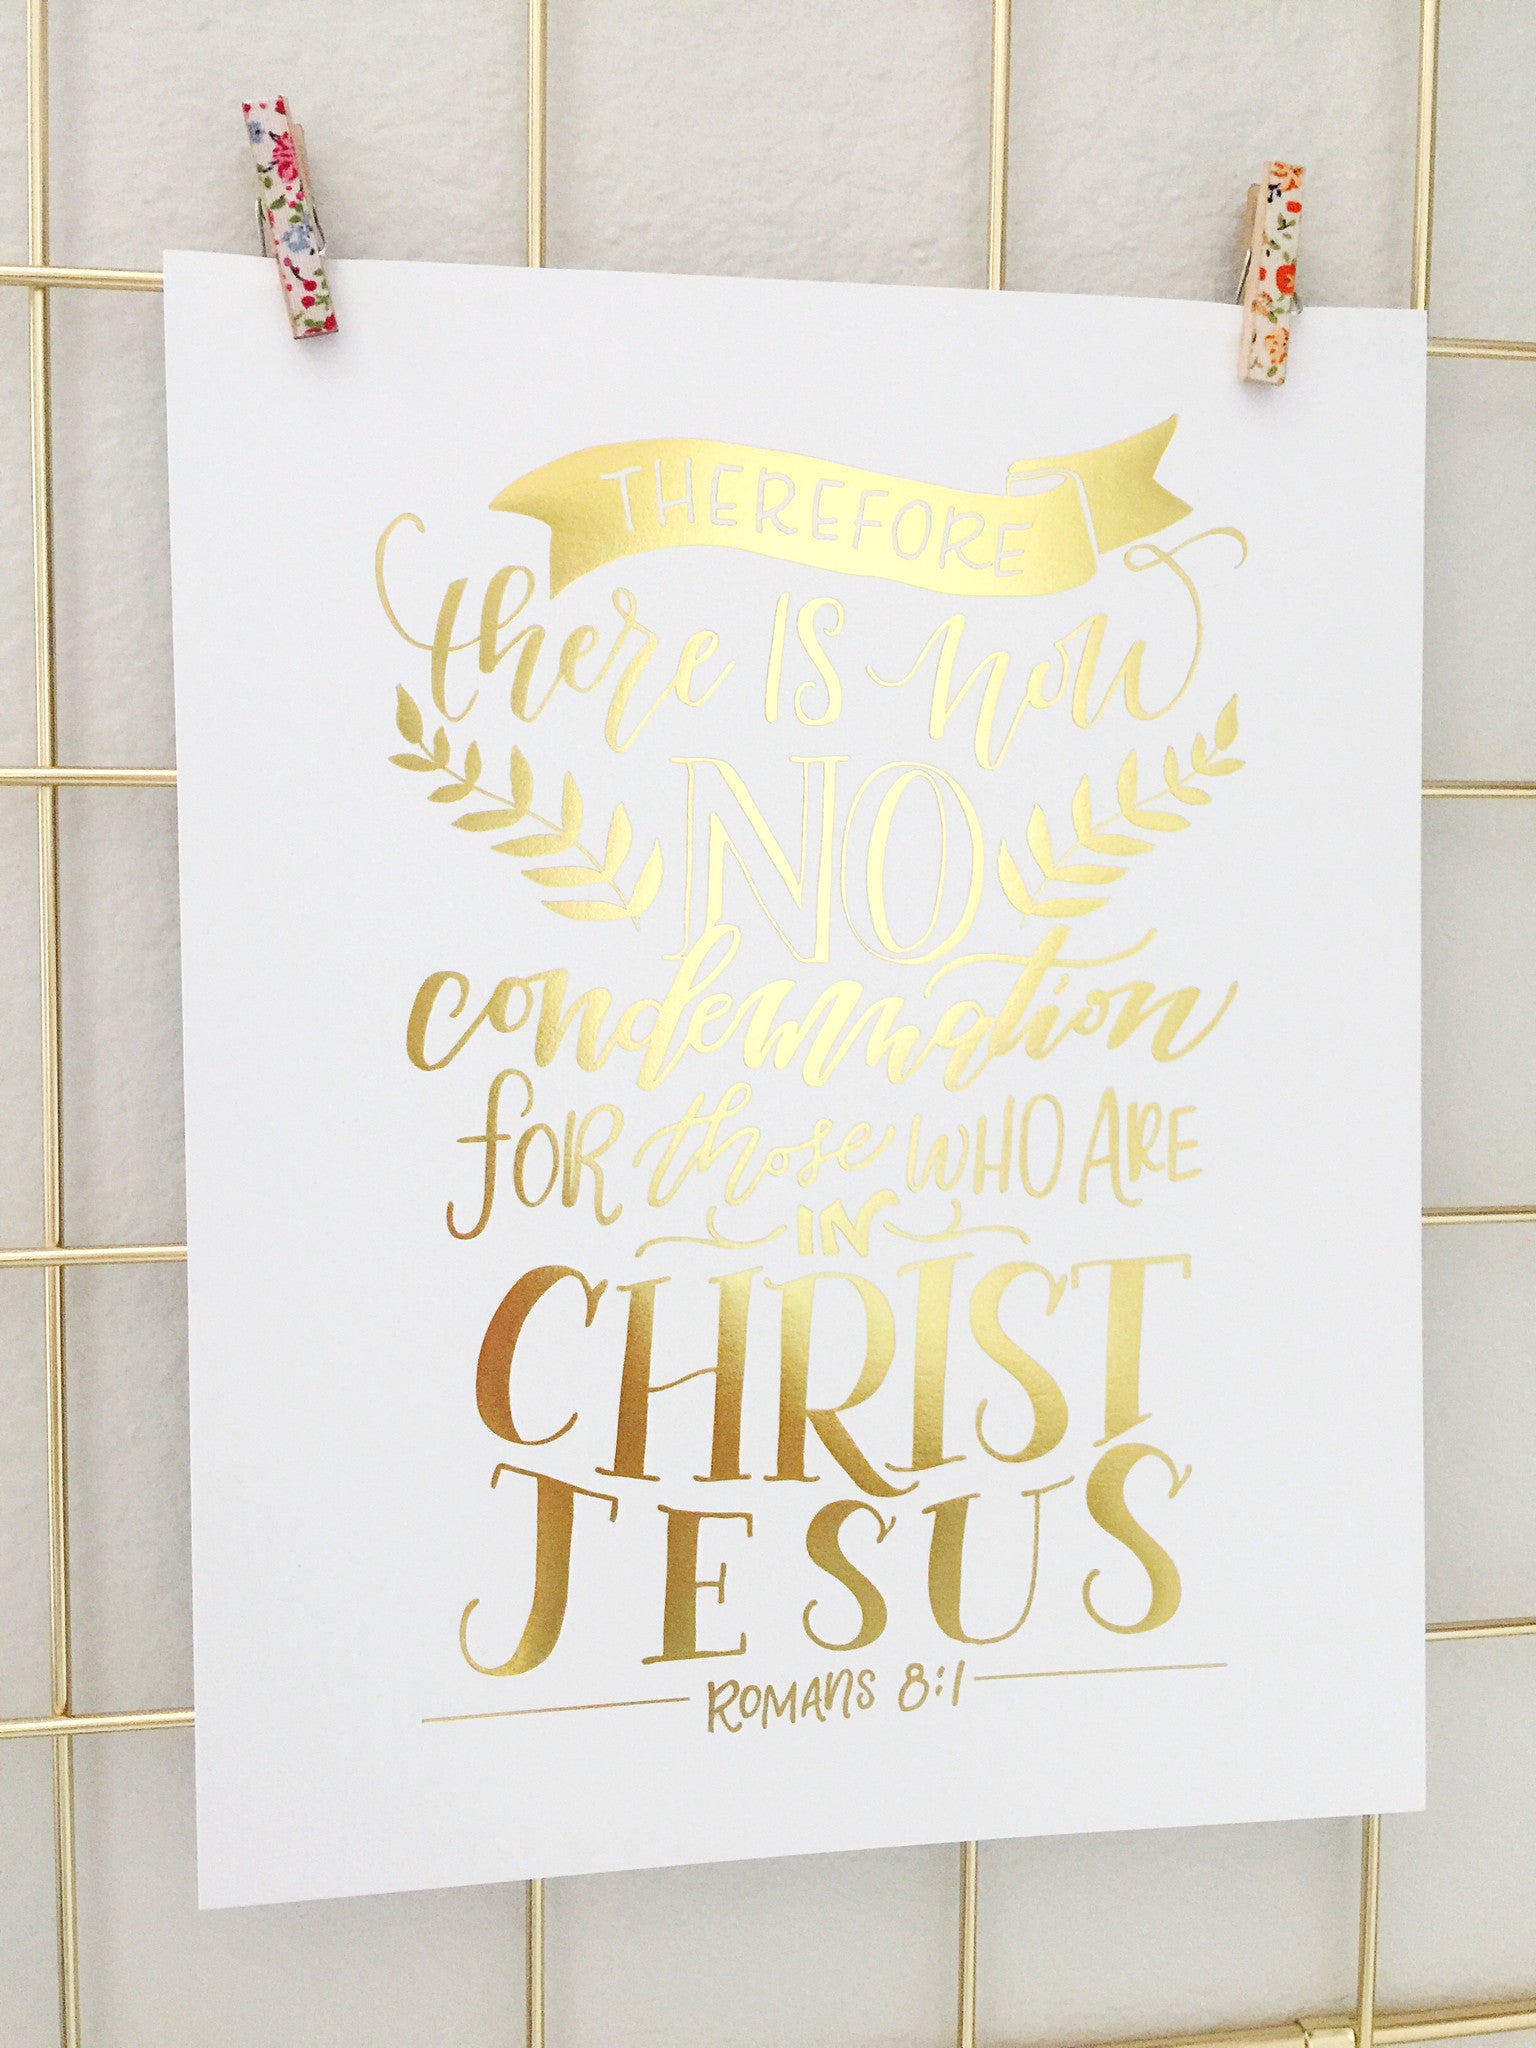 THEREFORE
there IS now
NO
condemnation
FOR those WHO ARE
IN
CHRIST
JESUS
ROMANS 8:1